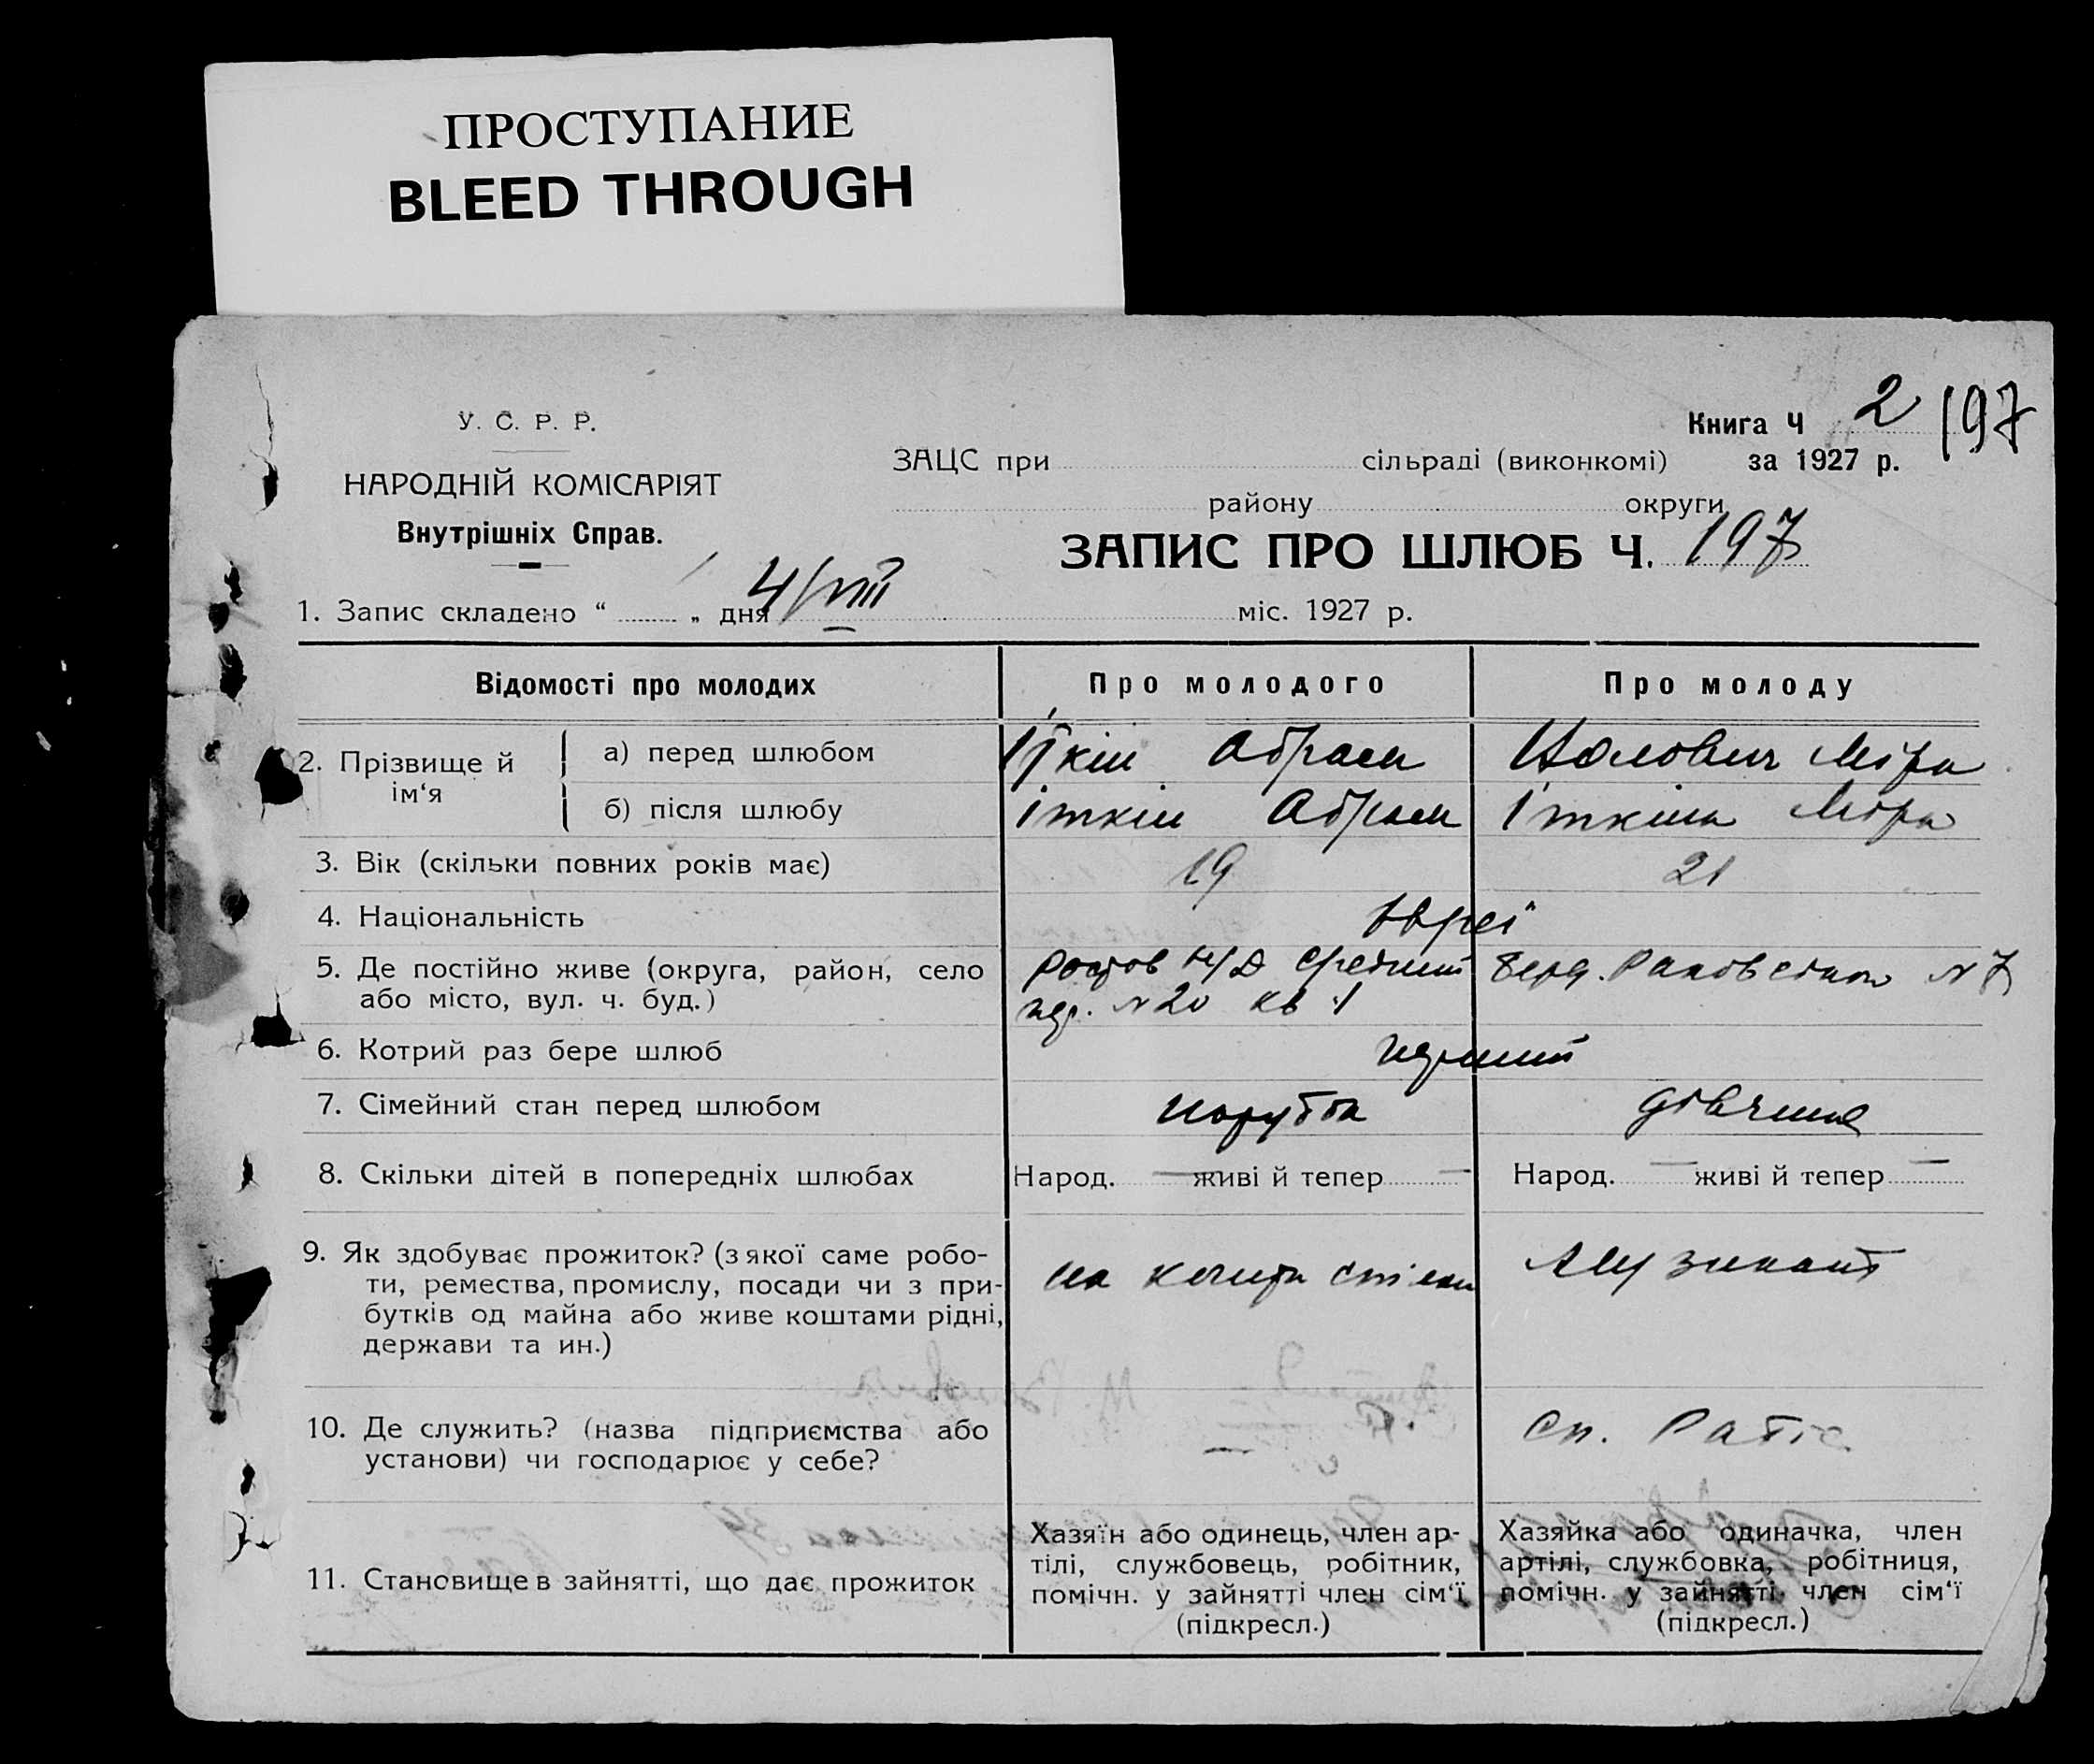 ПРОСТУПАНИЕ
BLEED THROUGH
У. С. Р. Р.
НАРОДНІЙ КОМІСАРІЯТ
Внутрішніх Справ.
Книга Ч 2 197
ЗАЦС при сільраді (виконкомі) за 1927 р.
району округи
ЗАПИС ПРО ШЛЮБ Ч. 197
1. Запис складено “ „ дня 4/VIII міс. 1927 р.
Відомості про молодих Про молодого Про молоду
2. Прізвище й ім‘я
а) перед шлюбом Іткін Абрам Міра
б) після шлюбу Іткін Абрам Іткіна Міра
3. Вік (скільки повних років має) 19 21
4. Національність Євреї
5. Де постійно живе (округа, район, село Ростов н/Д Средний
або місто, вул. ч. буд.) пер. N 20 кв 1 N 7
6. Котрий раз бере шлюб перший
7. Сімейний стан перед шлюбом парубок дівчина
8. Скільки дітей в попередніх шлюбах Народ. — живі й тепер — Народ. — живі й тепер —
9. Як здобуває прожиток? (з якої саме робо-
ти, ремества, промислу, посади чи з при-
бутків од майна або живе коштами рідні,
держави та ин.)
на Музикант
10. Де служить? (назва підприємства або
установи) чи господарює у себе?
— Сп. Рабіс
11. Становище в зайнятті, що дає прожиток
Хазяїн або одинець, член ар-
тілі, службовець, робітник,
помічн. у зайнятті член сім‘ї
(підкресл.)
Хазяйка або одиначка, член
артілі, службовка, робітниця,
помічн. у зайнятті член сім‘ї
(підкресл.)